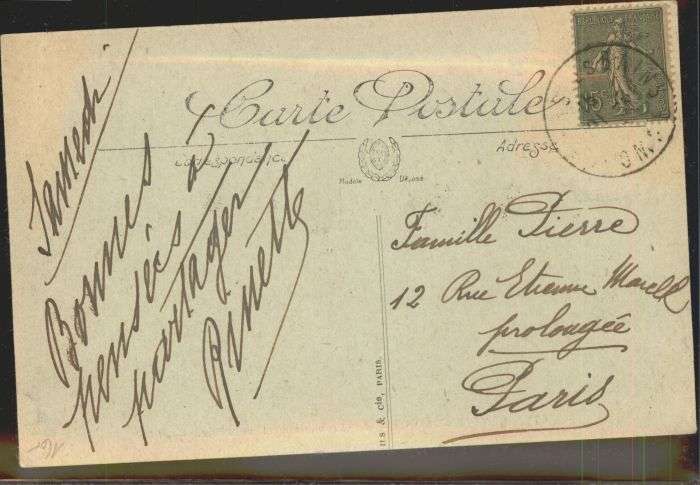 Carte Postale
Correspondance
Adresse
Modèle Déposé
Samedi
Bonnes
pensées à
partager
Rinette
Famille Pierre
12 Rue Etienne Marcell
prolongée
Paris
& Cie, PARIS